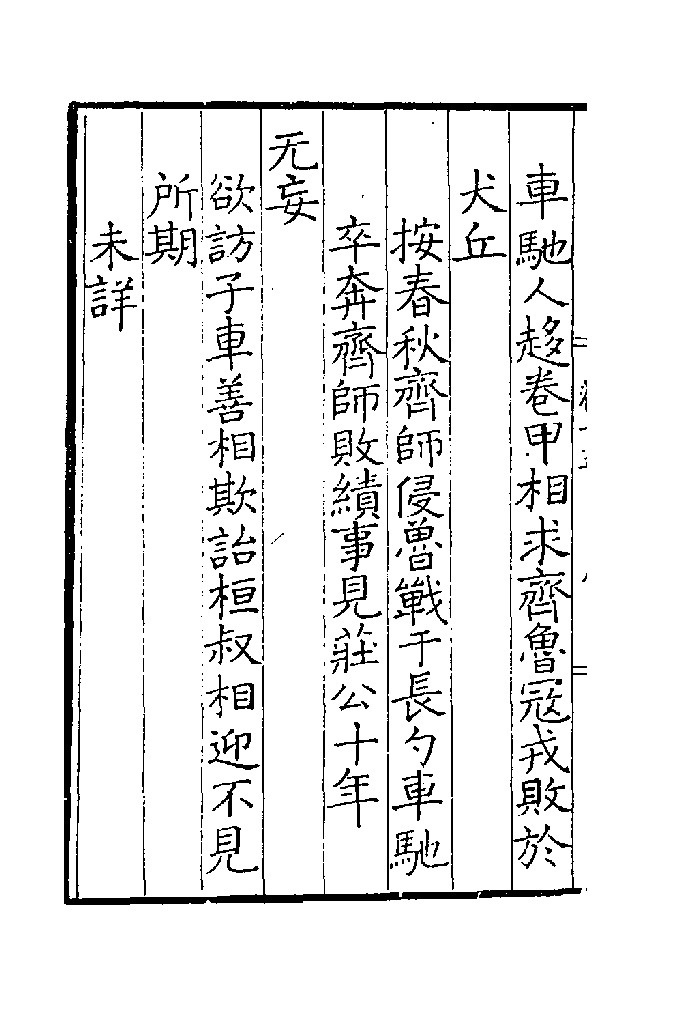 車馳人趍卷甲相求齊魯冦戎敗於
犬丘
按春秋齊師侵魯戰于長勺車馳
卒奔齊師敗績事見莊公十年
无妄
欲訪子車善相欺詒桓叔相迎不見
所期
未詳